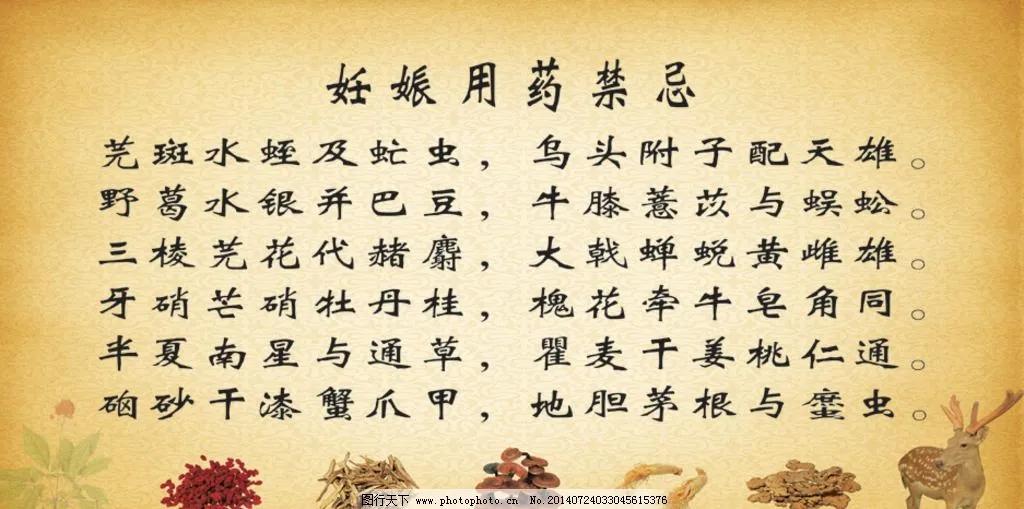 妊娠用药禁忌
芫斑水蛭及虻虫，乌头附子配天雄。
野葛水银并巴豆，牛膝薏苡与蜈蚣。
三棱芫花代赭麝，大戟蝉蜕黄雌雄。
牙硝芒硝牡丹桂，槐花牵牛皂角同。
半夏南星与通草，瞿麦干姜桃仁通。
硇砂干漆蟹爪甲，地胆茅根与䗪虫。
图行天下 www.photophoto.cn No.20140724033045615376